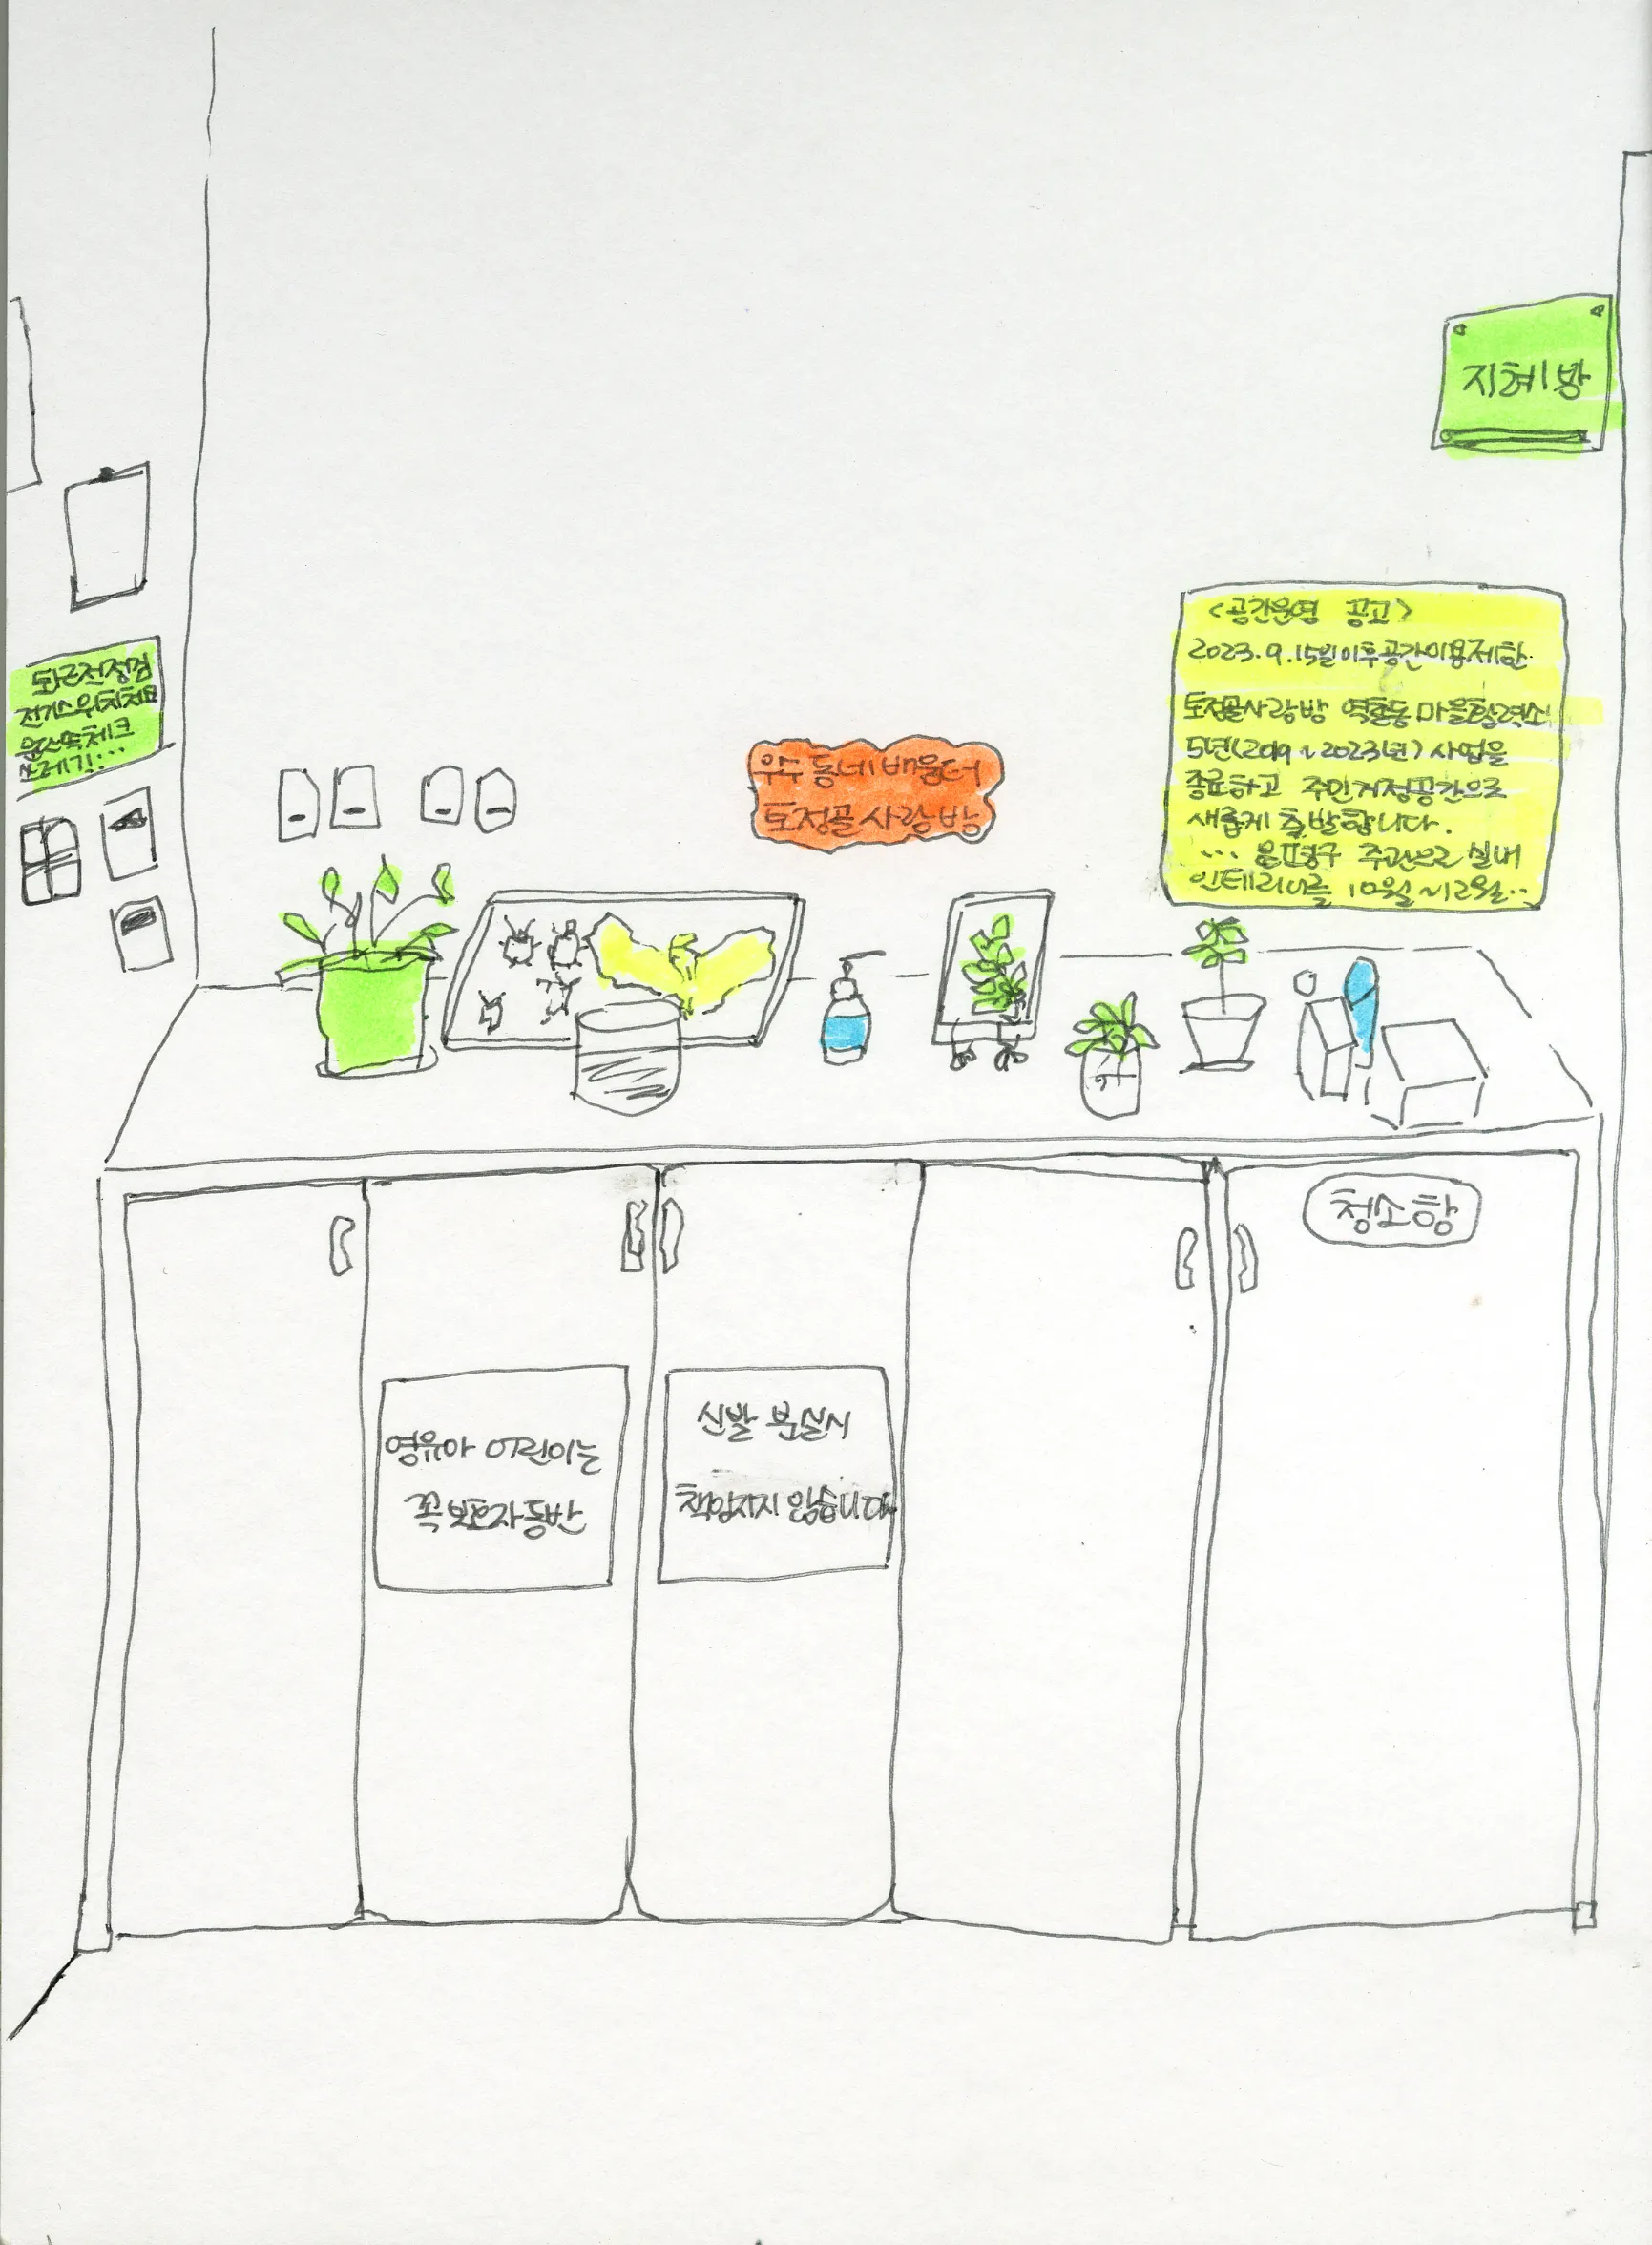 지혜방
퇴근전점검
전기스위치체크
쓰레기!..
<공간운영 공고>
2023.9.15일이후공간이용제한.
토정골사랑방 역촌동 마을활력소
5년(2019~2023년) 사업을
종료하고 주민거점공간으로
새롭게 출발합니다.
... 은평구 주관으로 실내
인테리어를 10월~12월..
우수 동네배움터
토정골사랑방
청소함
영유아 어린이는
꼭보호자동반
신발 분실시
책임지지 않습니다